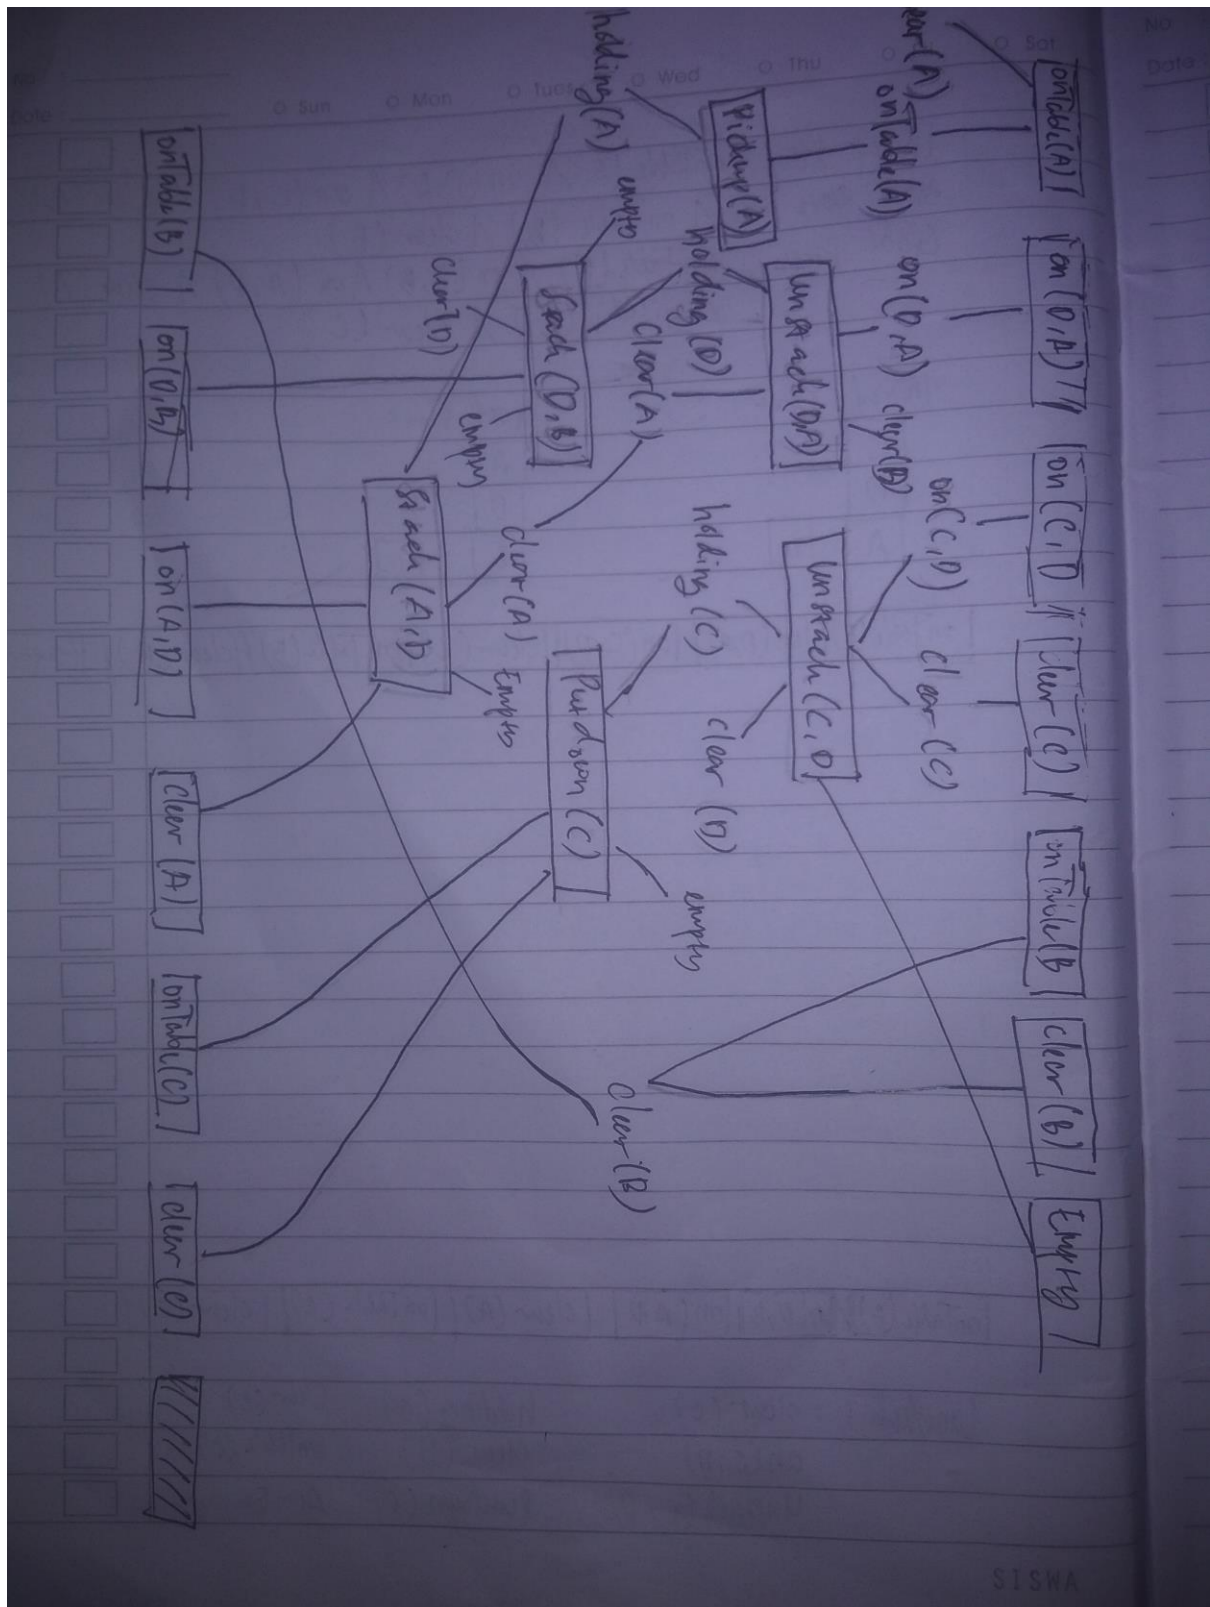 No
Date
Sat
Thu
Wed
Tues
Mon
Sun
SISWA
onTable(A)
on(D,A)
on(C,D
Clear(C)
onTable(B
Clear(B)
Empty
ear(A)
onTable(A)
on(D,A)
clear(D)
on(C,D)
clear(C)
Pickup(A)
Unstack(D,A)
Unstack(C,D)
holding(A)
empty
holding(D)
clear(A)
holding(C)
clear(D)
empty
Stack(D,B)
Putdown(C)
Clear(B)
clear(D)
empty
clear(A)
Empty
Stack(A,D)
onTable(B)
on(D,B)
on(A,D)
Clear(A)
onTable(C)
clear(C)